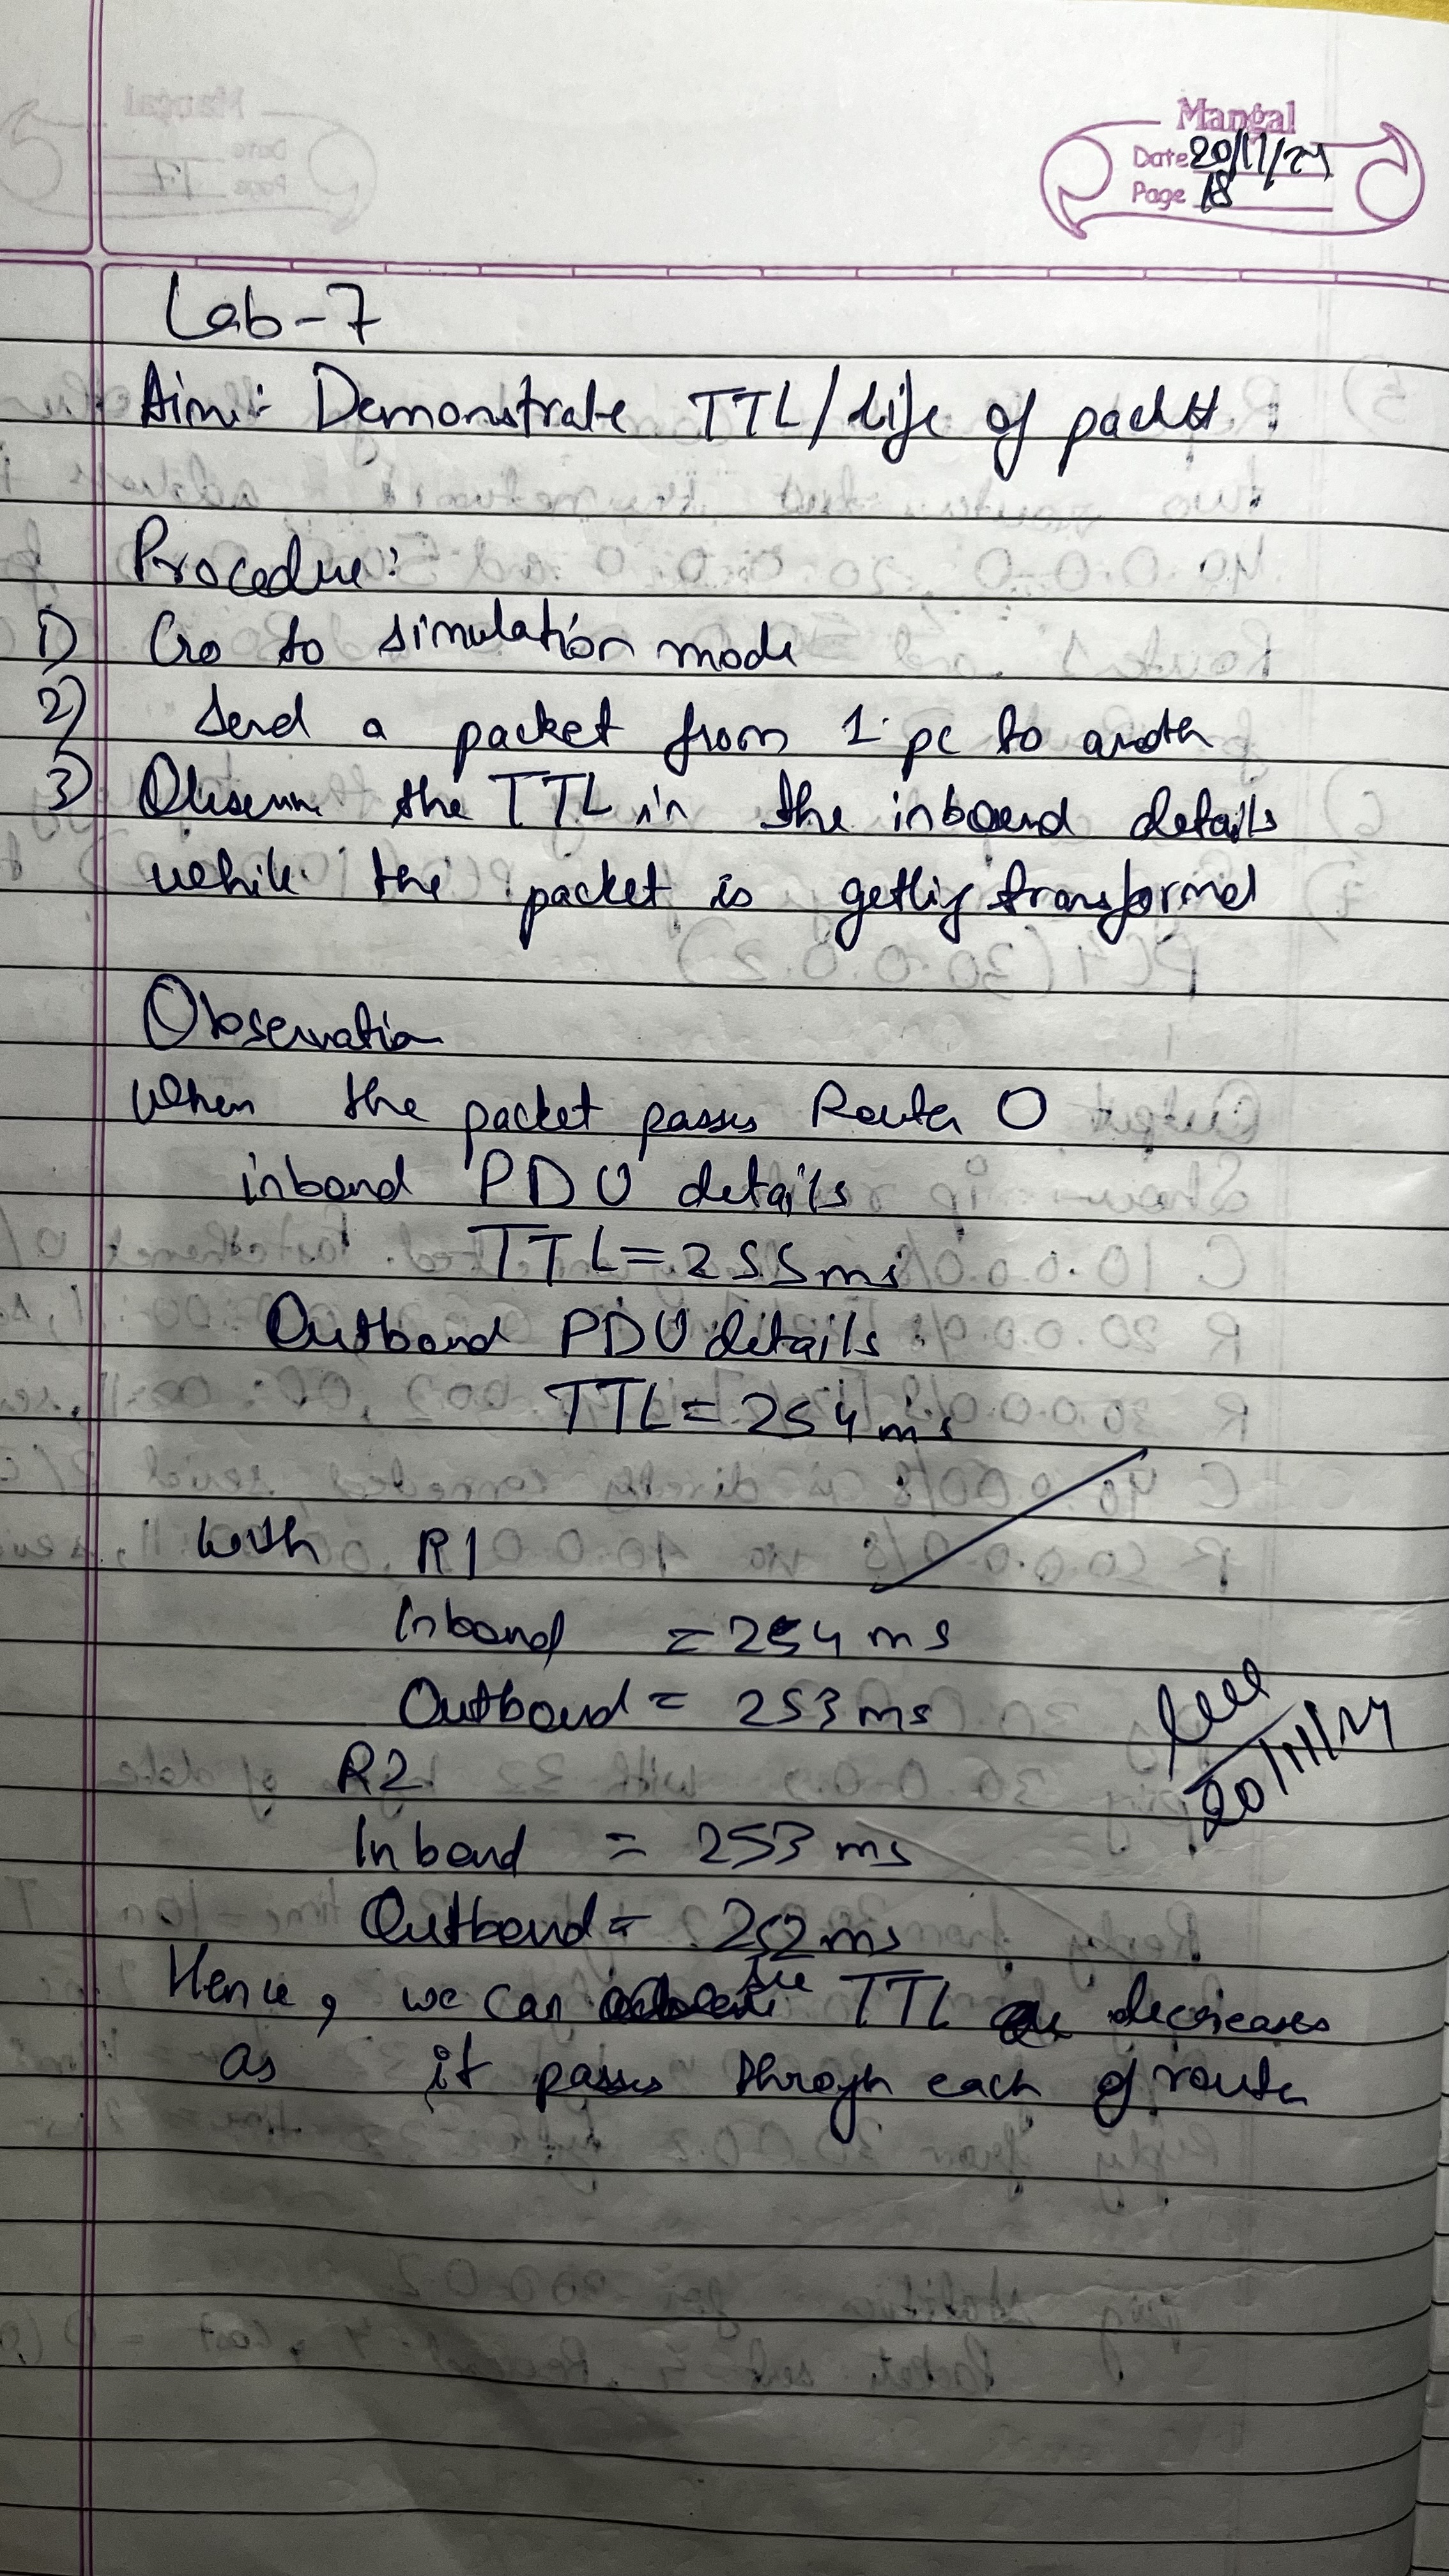 Mangal
Date 20/11/24
Page 18
Lab-7
Aim: Demonstrate TTL/life of packet:
Procedure:
1) Go to simulation mode
2) Send a packet from 1 pc to anoth
3) Observe the TTL in the inbound details
while the packet is getting transformed
Observation
When the packet passes Router 0
inbound PDU details
TTL=255ms
Outbound PDU details
TTL=254ms
with R1
Inbound = 254 ms
Outbound = 253 ms
20/11/24
R2
Inbound = 253 ms
Outbound = 252 ms
Hence, we can see TTL decreases
as it passes through each of router